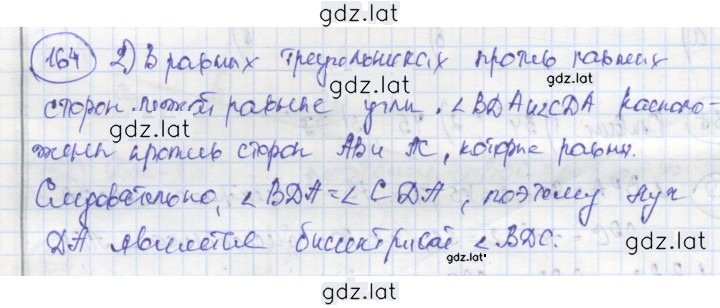 gdz.lat
164 2) В равных треугольниках против равных
gdz.lat
gdz.lat
сторон лежат равные углы. ∠BDA и ∠CDA располо-
gdz.lat
жены против сторон AB и AC, которые равны.
Следовательно, ∠BDA = ∠CDA, поэтому луч
gdz.lat
DA является биссектрисой ∠BDC.
gdz.lat
gdz.lat
gdz.lat